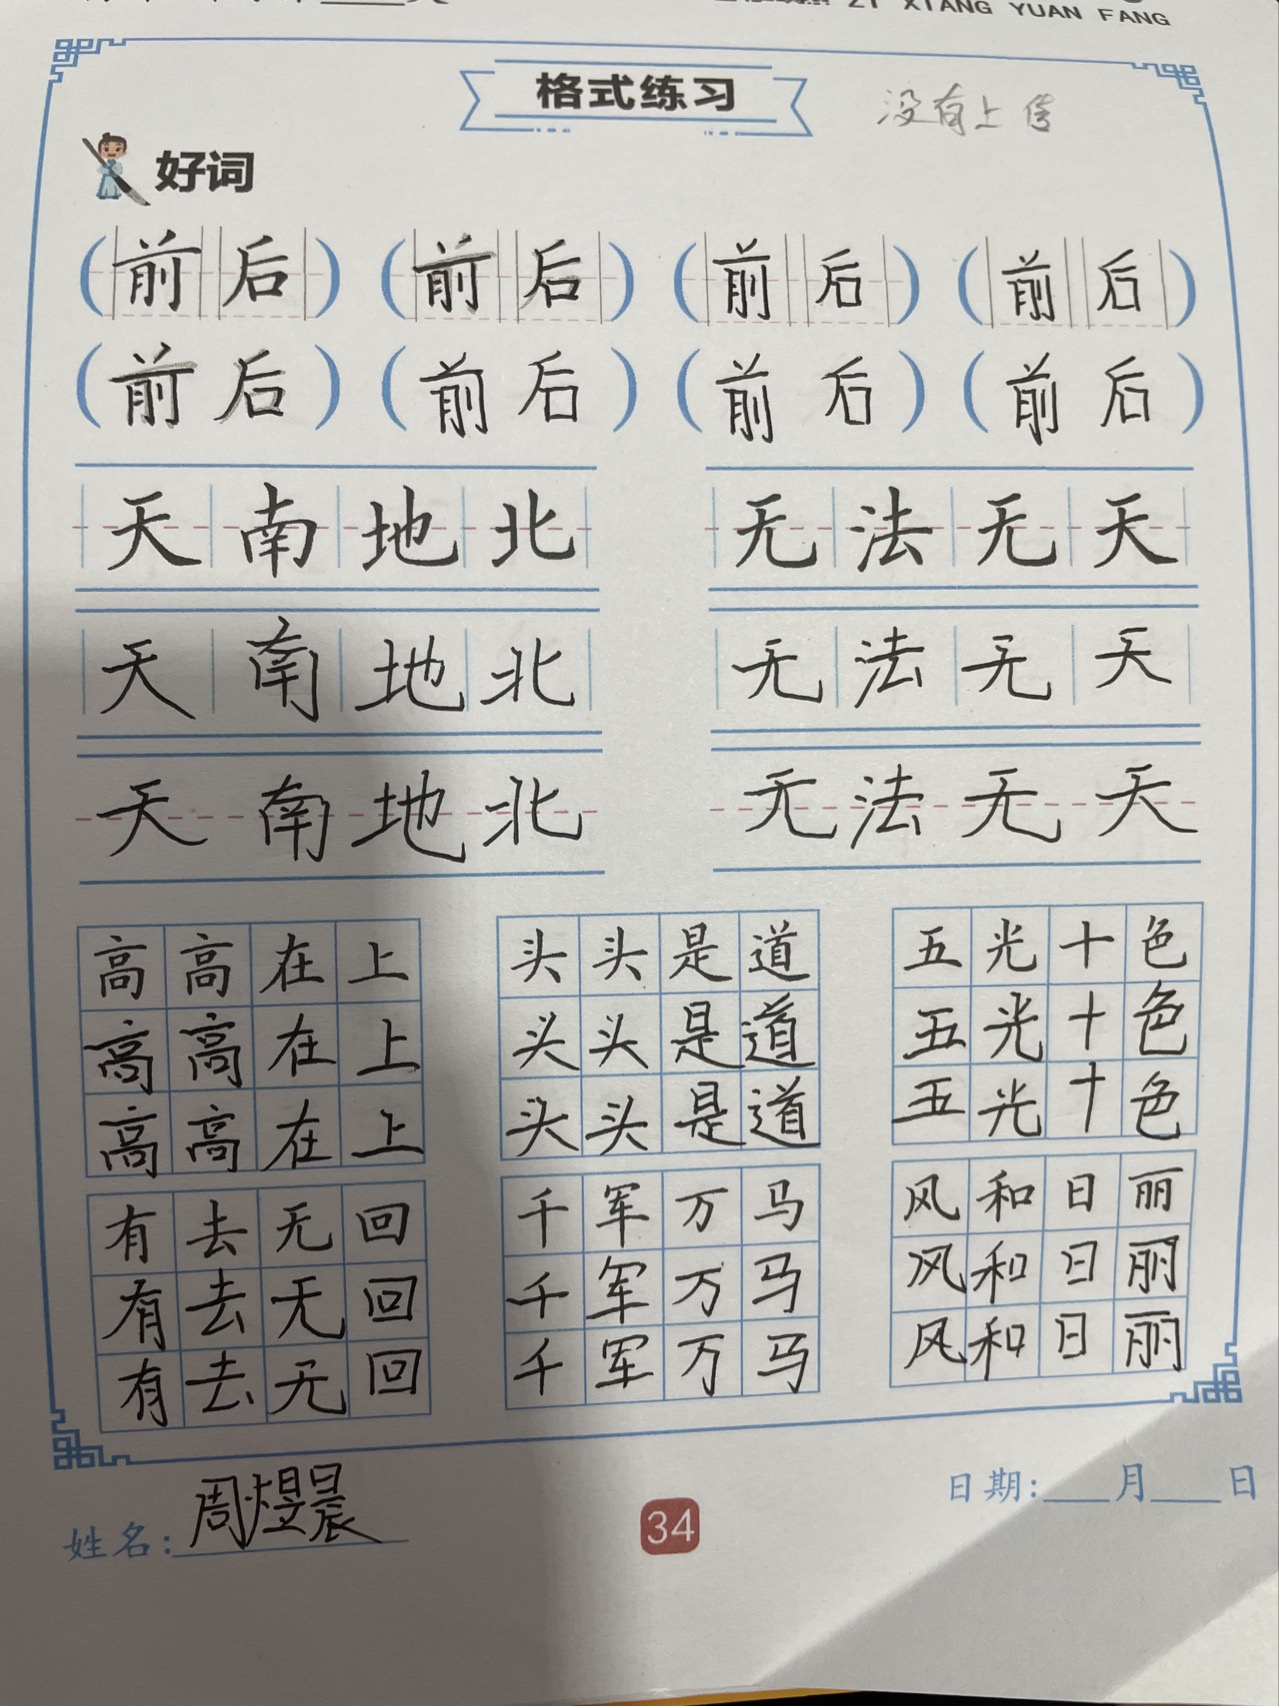 ZI XIANG YUAN FANG
格式练习
没有上传
好词
(前后) (前后) (前后) (前后)
(前后) (前后) (前后) (前后)
天南地北 无法无天
天南地北 无法无天
天南地北 无法无天
高高在上 头头是道 五光十色
高高在上 头头是道 五光十色
高高在上 头头是道 五光十色
有去无回 千军万马 风和日丽
有去无回 千军万马 风和日丽
有去无回 千军万马 风和日丽
姓名:周煜晨
日期:___月___日
34